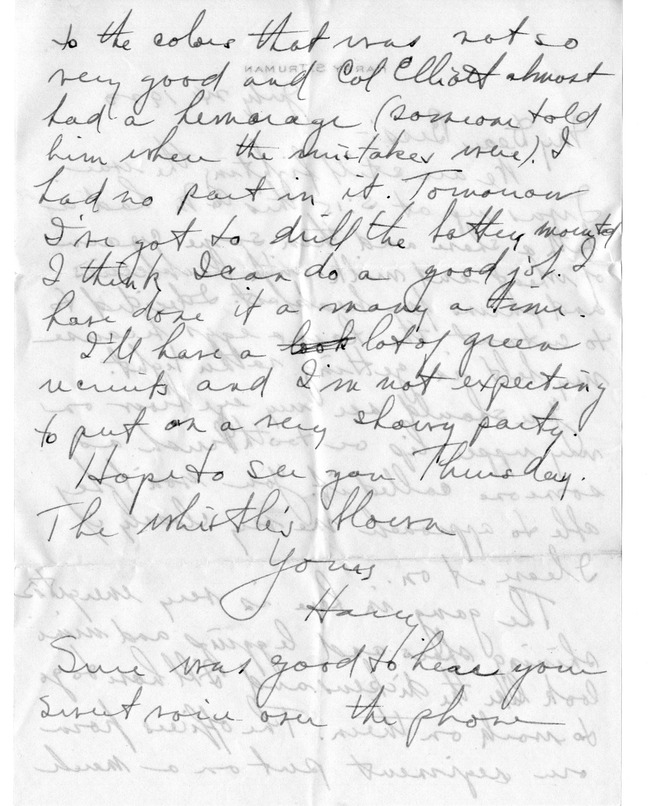 to the colors that was not so
very good and Col Elliott almost
had a hemorage (someone told
him when the mistakes were). I
had no part in it. Tomorrow
I've got to drill the battery mounted
I think I can do a good job. I
have done it a many a time.
I'll have a look lot of green
recruits and I'm not expecting
to put on a very showy party.
Hope to see you Thursday.
The whistle's blown
Yours
Harry
Sure was good to hear your
sweet voice over the phone